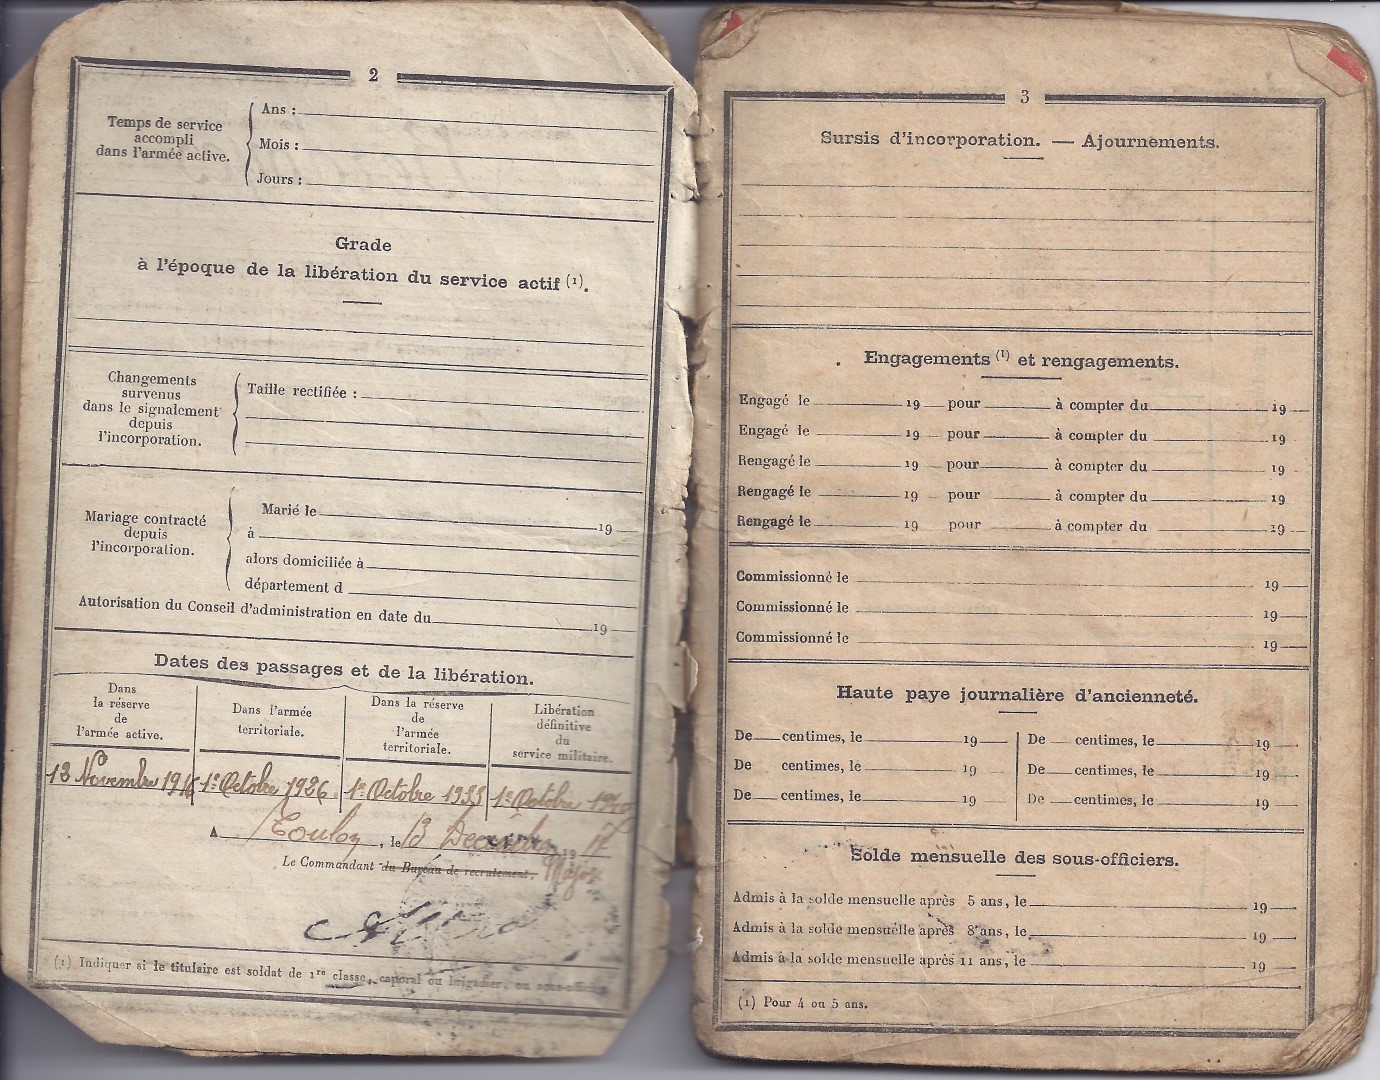 2
Temps de service
accompli
dans l'armée active.
Ans :
Mois :
Jours :
Grade
à l'époque de la libération du service actif (1).
Changements
survenus
dans le signalement
depuis
l'incorporation.
Taille rectifiée :
Mariage contracté
depuis
l'incorporation.
Marié le 19
à
alors domiciliée à
département d
Autorisation du Conseil d'administration en date du 19
Dates des passages et de la libération.
Dans
la réserve
de
l'armée active.
Dans l'armée
territoriale.
Dans la réserve
de
l'armée
territoriale.
Libération
définitive
du
service militaire.
13 Novembre 1916
1er Octobre 1926
1er Octobre 1933
1er Octobre 1940
A Toulon, le 13 Décembre 1917
Le Commandant du Bureau de recrutement, Major
(1) Indiquer si le titulaire est soldat de 1re classe, caporal ou brigadier, ou sous-officier.
3
Sursis d'incorporation. — Ajournements.
Engagements (1) et rengagements.
Engagé le 19 pour à compter du 19
Engagé le 19 pour à compter du 19
Rengagé le 19 pour à compter du 19
Rengagé le 19 pour à compter du 19
Rengagé le 19 pour à compter du 19
Commissionné le 19
Commissionné le 19
Commissionné le 19
Haute paye journalière d'ancienneté.
De centimes, le 19
De centimes, le 19
De centimes, le 19
De centimes, le 19
De centimes, le 19
De centimes, le 19
Solde mensuelle des sous-officiers.
Admis à la solde mensuelle après 5 ans, le 19
Admis à la solde mensuelle après 8 ans, le 19
Admis à la solde mensuelle après 11 ans, le 19
(1) Pour 4 ou 5 ans.